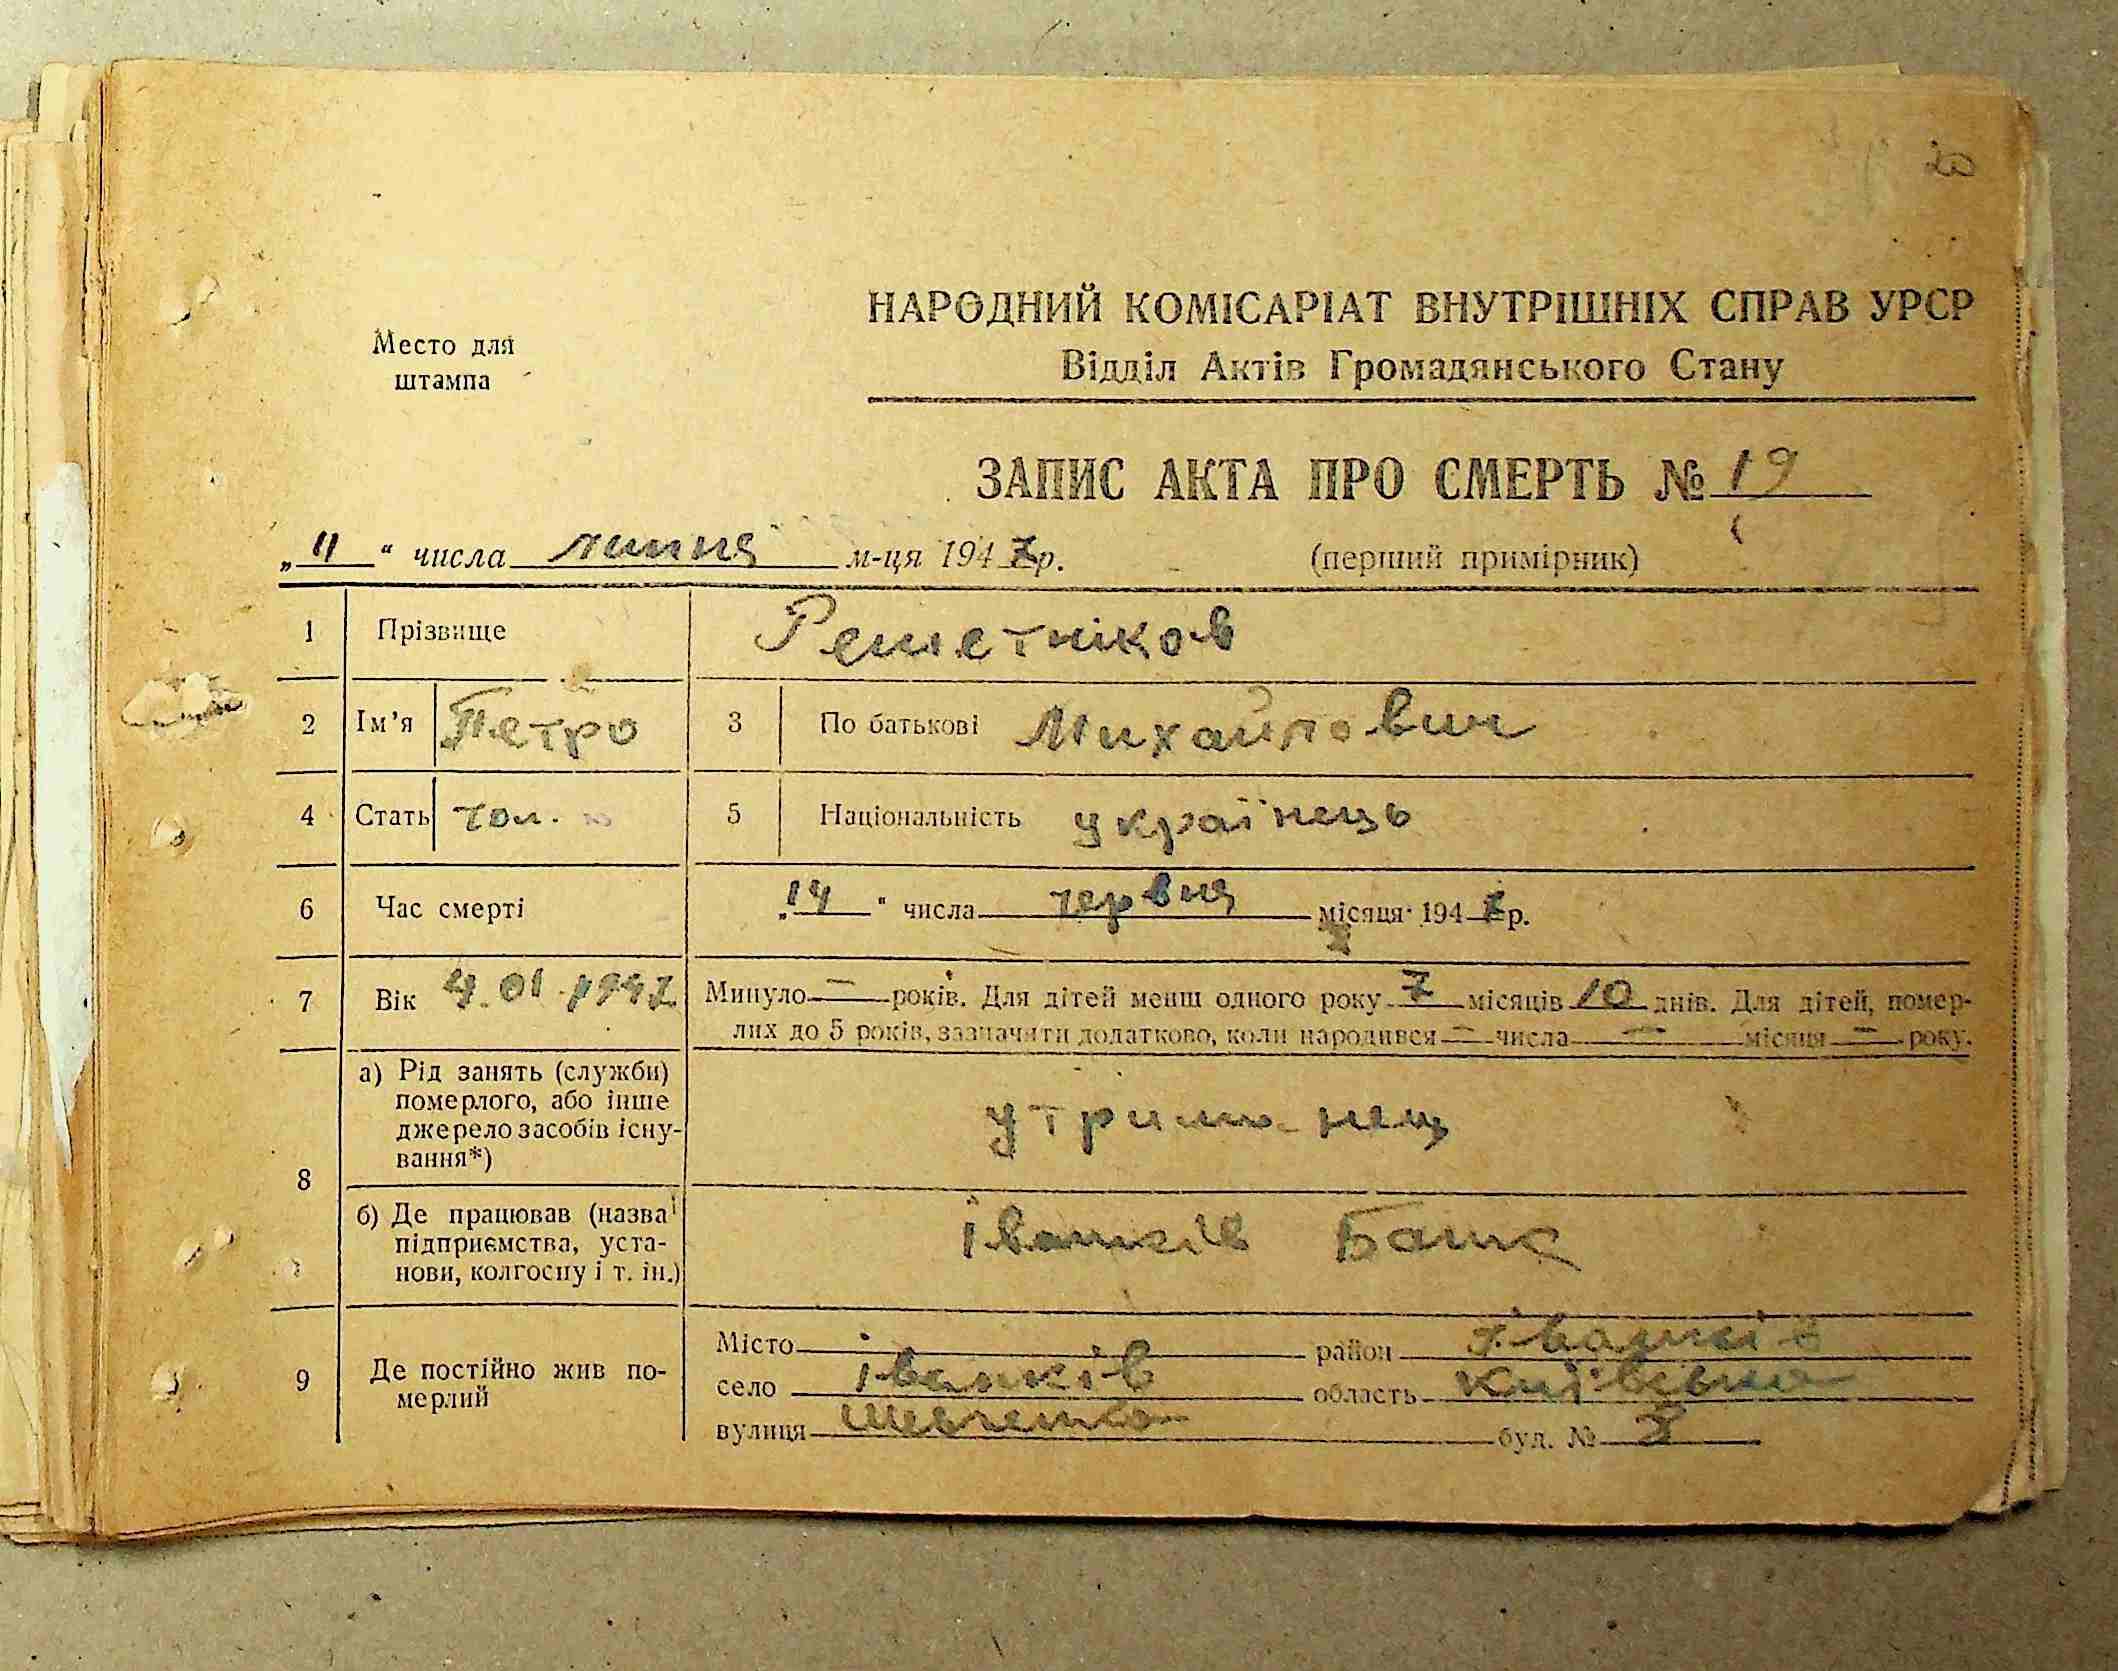 20
Место для
штампа
НАРОДНИЙ КОМІСАРІАТ ВНУТРІШНІХ СПРАВ УРСР
Відділ Актів Громадянського Стану
ЗАПИС АКТА ПРО СМЕРТЬ № 19
„11“ числа липня м-ця 1947 р. (перший примірник)
1 Прізвище Решетніков
2 Ім’я Петро 3 По батькові Михайлович
4 Стать чол. 5 Національність українець
6 Час смерті „14“ числа червня місяця 1947 р.
7 Вік 4.01.1947 Минуло — років. Для дітей менш одного року 7 місяців 10 днів. Для дітей, помер-
лих до 5 років, зазначити додатково, коли народився — числа — місяця — року.
8 а) Рід занять (служби)
померлого, або інше
джерело засобів існу-
вання*)
утриманец
б) Де працював (назва
підприємства, уста-
нови, колгоспу і т. ін.)
іванків Банк
9 Де постійно жив по-
мерлий
Місто район іванків
село іванків область київська
вулиця Шевченка буд. №